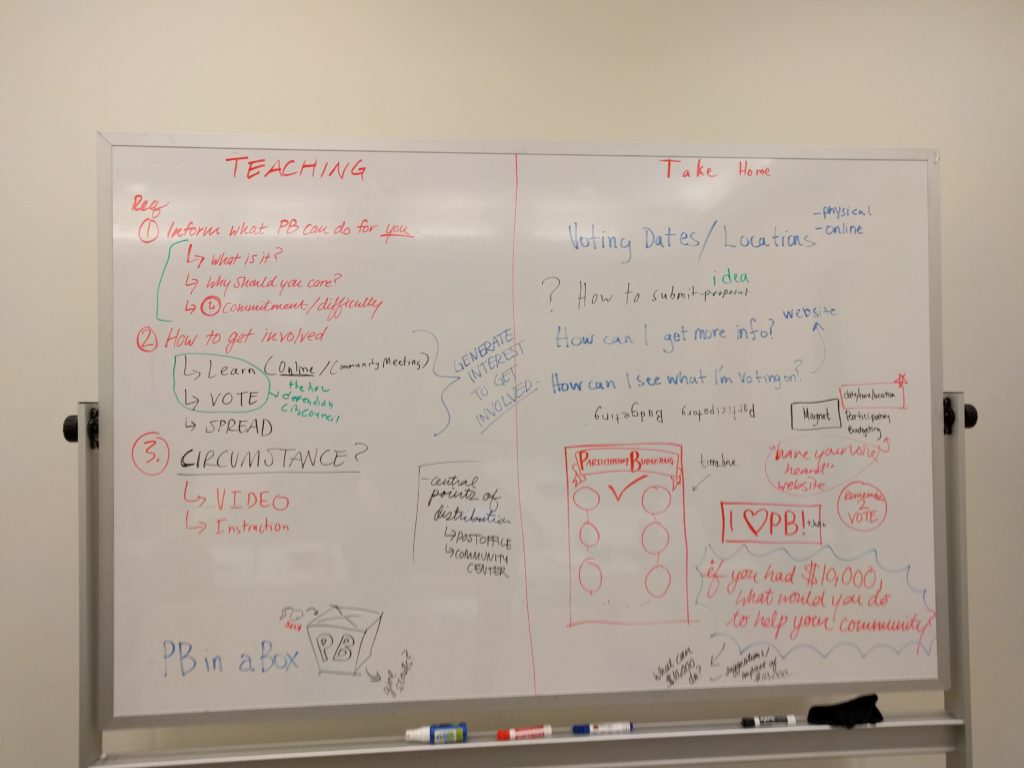 TEACHING
Req
① Inform what PB can do for you.
↳ What is it?
↳ Why should you care?
↳ commitment/difficulty
② How to get involved
↳ Learn (Online/Community Meeting)
↳ VOTE
the how
depend on
City Council
↳ SPREAD
3. CIRCUMSTANCE?
↳ VIDEO
↳ Instruction
GENERATE
INTEREST
TO GET
INVOLVED:
- central
points of
distribution
↳ POSTOFFICE
↳ COMMUNITY
CENTER
PB in a Box
PB
give
Take Home
Voting Dates/Locations
- physical
- online
idea
? How to submit proposal
How can I get more info?
website
How can I see what I'm voting on?
Participatory Budgeting
Magnet
date/time/location
Participatory
Budgeting
PARTICIPATORY BUDGETING
timeline
"have your voice
heard"
website
I ♡ PB!
Remember
2
VOTE
if you had $10,000,
what would you do
to help your community
What can
$10,000
do?
suggestions/
impact of
$10,000...
EXPO